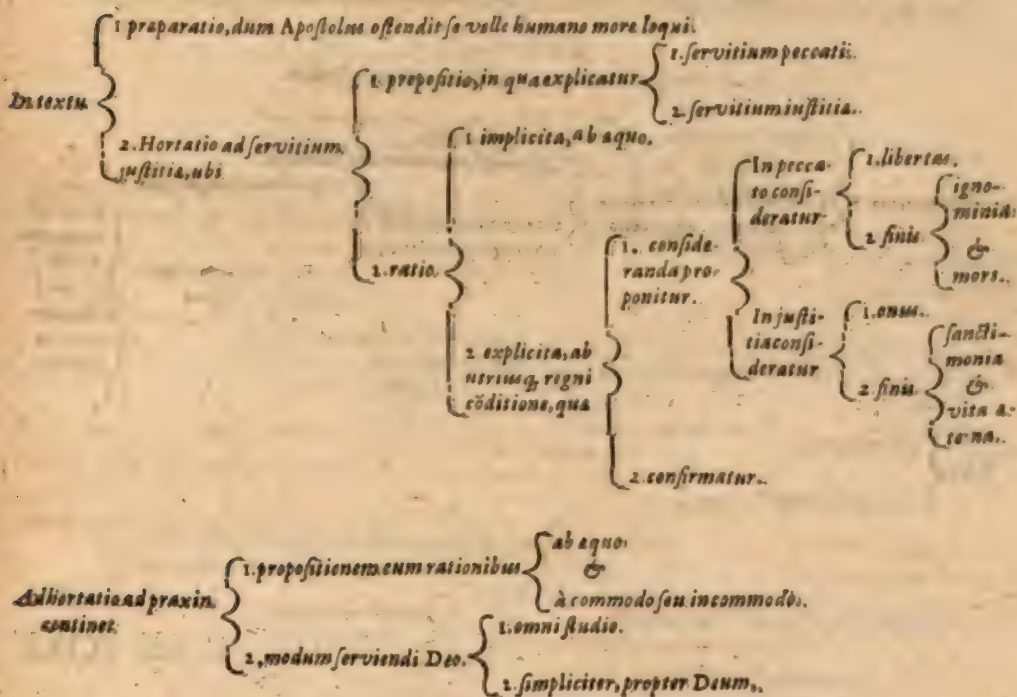 1 preparatio, dum Apoſtolus oſtendit ſe velle humano more loqui.
In textu
2. Hortatio ad ſervitium
juſtitiæ, ubi
1. propoſitio, in qua explicatur
1. ſervitium peccati.
2 ſervitium iuſtitiæ.
2. ratio.
1 implicita, ab æquo.
2 explicita, ab
utriusq, regni
cõditione, quæ
1. conſide-
randa pro-
ponitur.
In pecca-
to conſi-
deratur
1. libertas.
2 finis
igno-
minia
&
mors.
In juſti-
tia conſi-
deratur
1. onus.
2 finis
ſancti-
monia
&
vita æ-
terna.
2. confirmatur.
Adhortatio ad praxin
continet
1. propoſitionem cum rationibus
ab æquo
&
à commodo ſeu incommodo.
2, modum ſerviendi Deo.
1. omni ſtudio.
2. ſimpliciter, propter Deum.